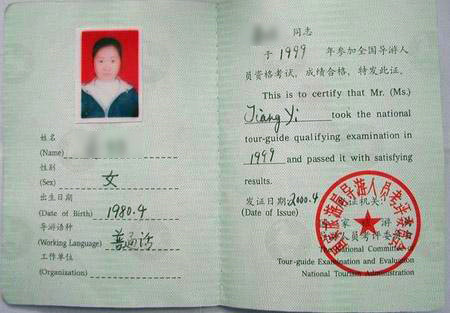 姓名
(Name)
性别
(Sex) 女
出生日期
(Date of Birth) 1980.4
导游语种
(Working Language) 普通话
工作单位
(Organization)
同志
于 1999 年参加全国导游人
员资格考试,成绩合格,特发此证。
This is to certify that Mr. (Ms.)
Jiang Yi took the national
tour-guide qualifying examination in
1999 and passed it with satisfying
results.
发证日期: 2000.4 证机关:
(Date of Issue) 家 游
人员考评委
The National Committee
Tour-guide Examination and Evaluation
National Tourism Administration
导游人员考评委员会